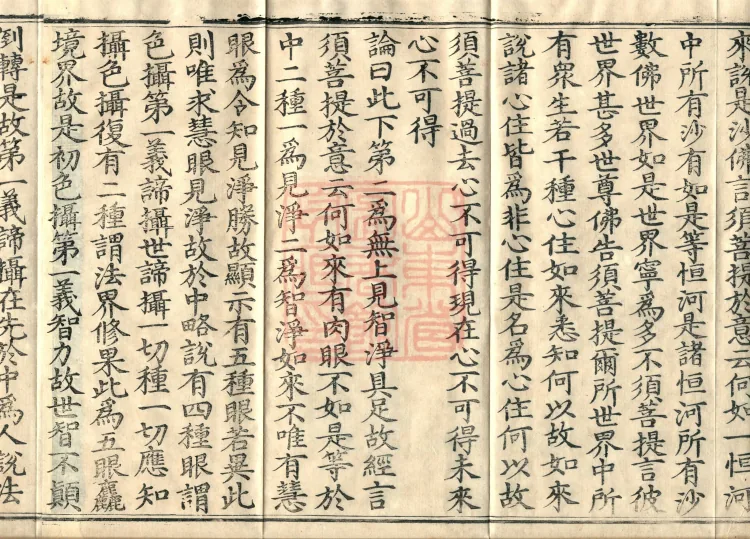 來說是沙佛言須菩提於意云何如一恒河
中所有沙有如是等恒河是諸恒河所有沙
數佛世界如是世界寧為多不須菩提言彼
世界甚多世尊佛告須菩提爾所世界中所
有衆生若干種心住如來悉知何以故如來
說諸心住皆為非心住是名為心住何以故
須菩提過去心不可得現在心不可得未來
心不可得
論曰此下第二為無上見智淨具足故經言
須菩提於意云何如來有肉眼不如是等於
中二種一為見淨二為智淨如來不唯有慧
眼為令知見淨勝故顯示有五種眼若異此
則唯求慧眼見淨故於中略說有四種眼謂
色攝第一義諦攝世諦攝一切種一切應知
攝色攝復有二種謂法界修果此為五眼麤
境界故是初色攝第一義智力故世智不顛
到轉是故第一義諦攝在先於中為人說法